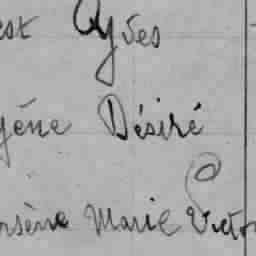 est Yves
gène Désiré
rsène Marie Victo